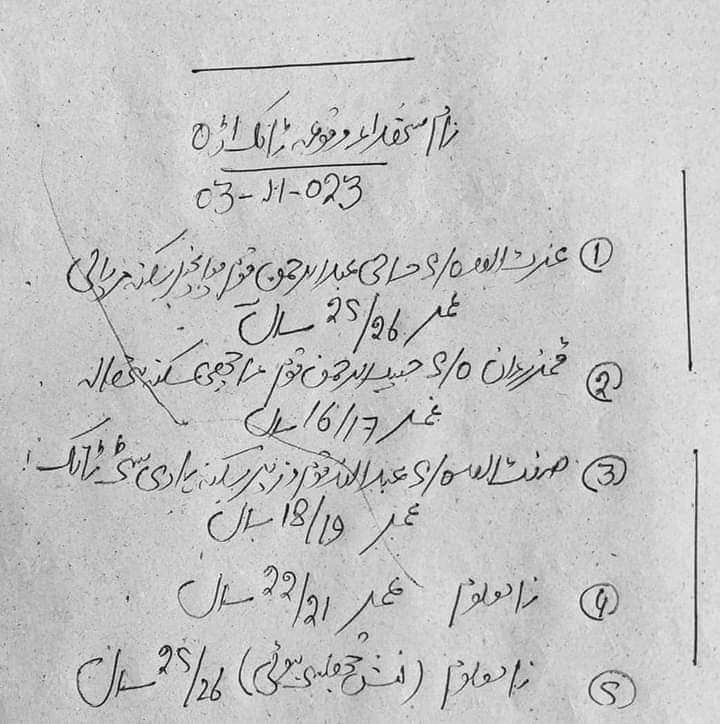 نام متوفیان وقوعہ ٹانک اڈہ
03-11-023
① عزت اللہ s/o حاجی عبدالرحمن قوم سکنہ
عمر 25/26 سال
② محمد s/o حبیب الرحمن قوم سکنہ
عمر 16/17 سال
③ صفت اللہ s/o عبداللہ قوم وزیر سکنہ وادی سٹی ٹانک
عمر 18/19 سال
④ نامعلوم عمر 22/21 سال
⑤ نامعلوم (نعش جھلسی ہوئی) 25/26 سال